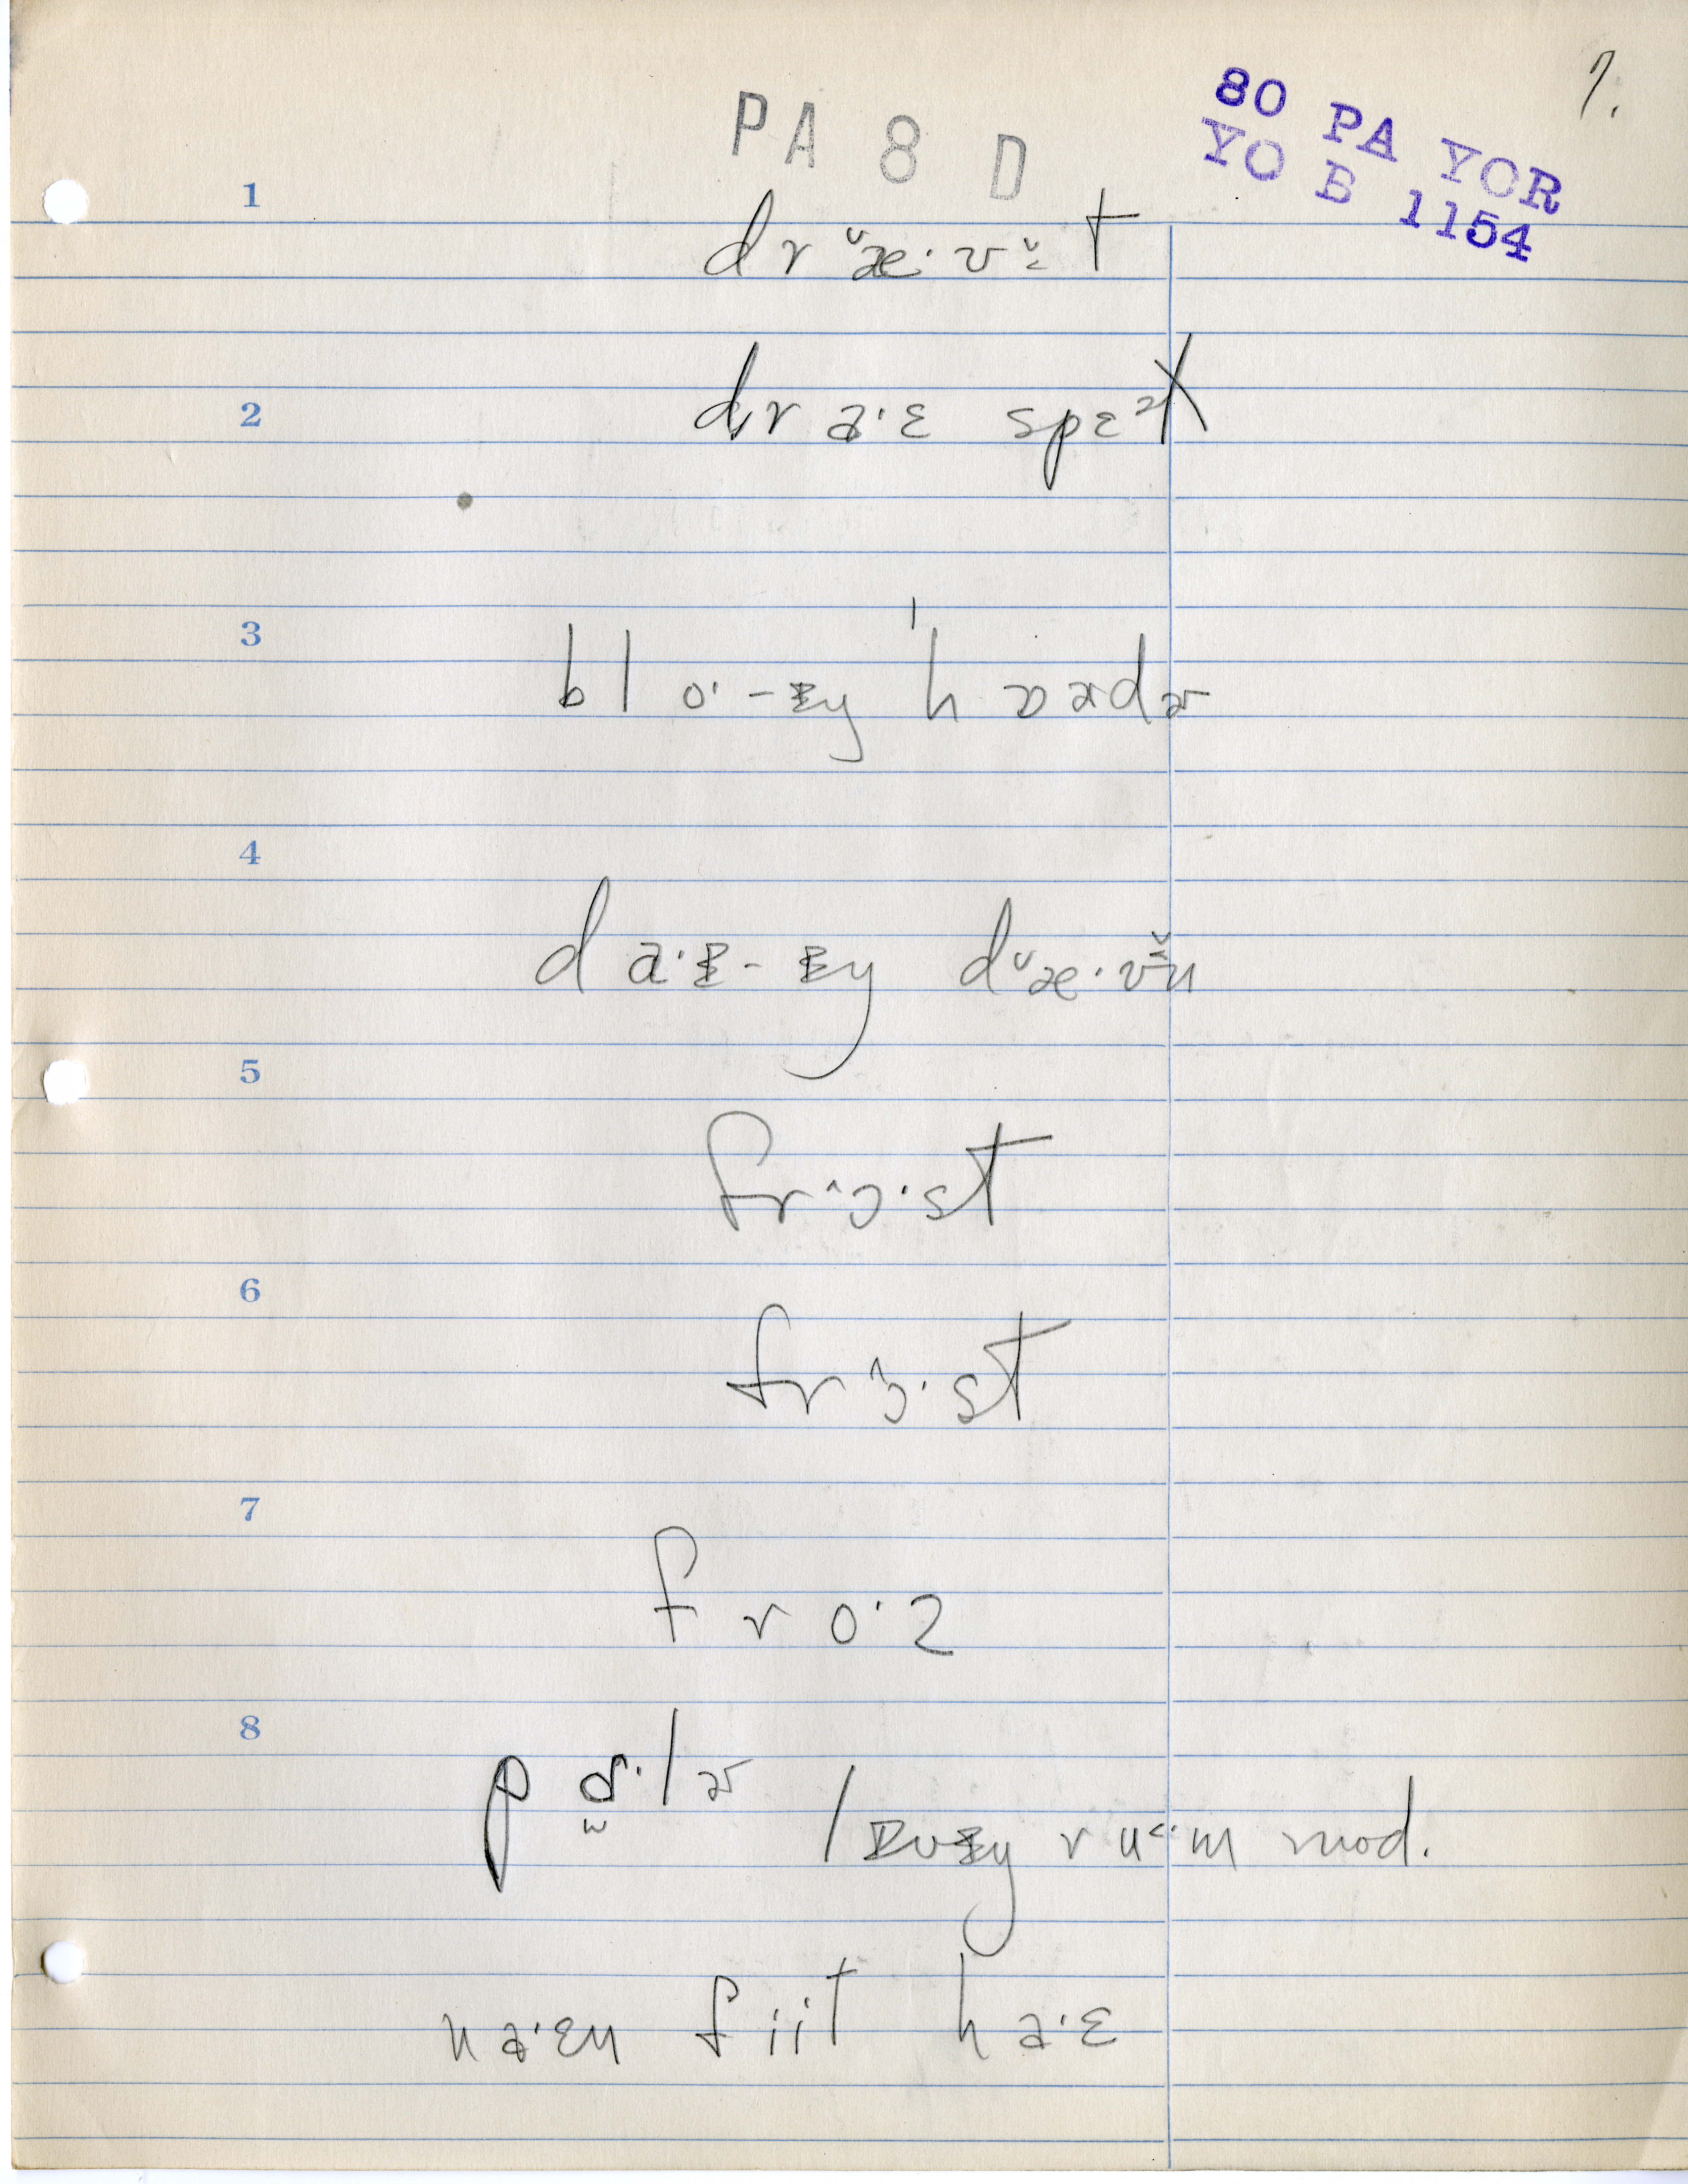 7.
80 PA YOR
YO B 1154
PA 8 D
1
dr ˇæ·ʊ̬t
2
dr a·ɛ spɛᵊɫ
3
bl o·-ɪŋ ˈh ɒɚdɚ
4
d a·ɪ-ɪŋ dˇæ·ʊ̬n
5
frˆɔ·st
6
frɔ̂·st
7
f r o·z
8
p ɑ·lɚ /lɪvɪŋ r u˂·m mod.
n a·ɛn fiit h a·ɛ